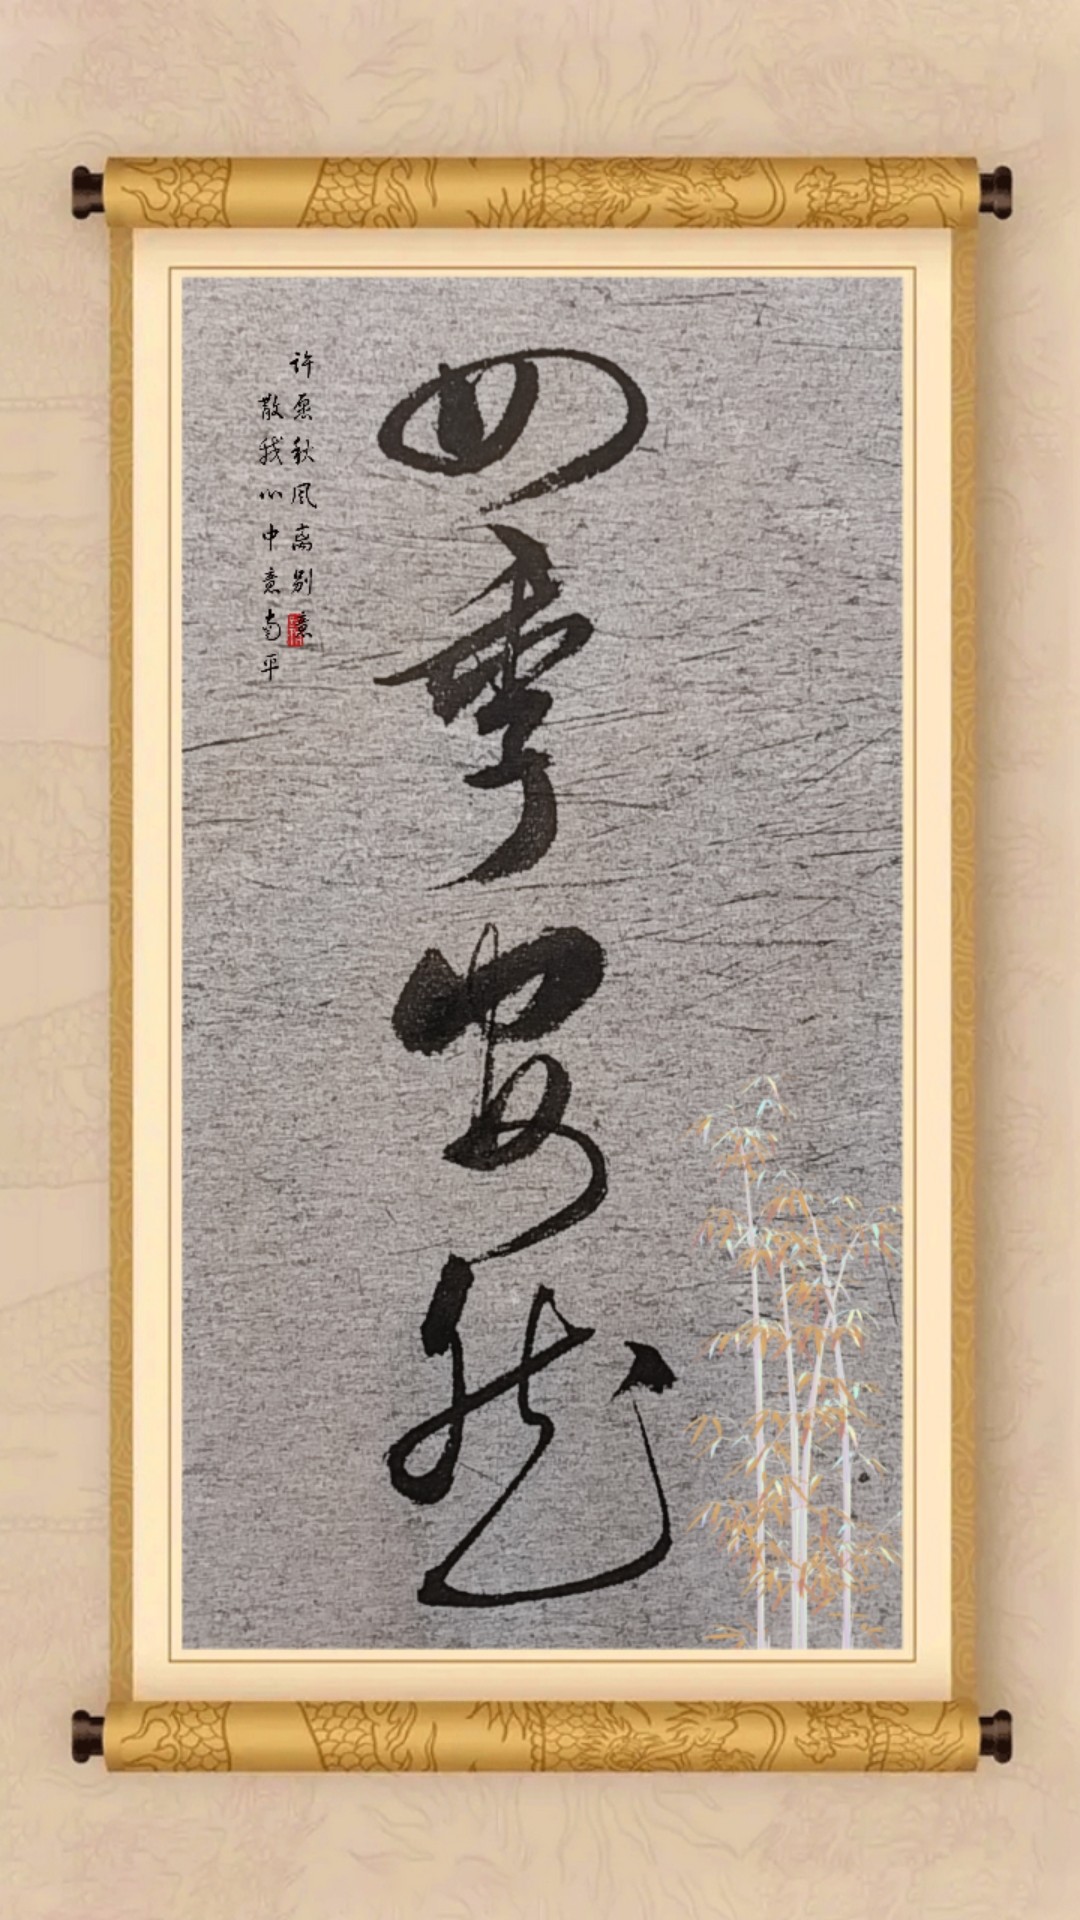 四季安然
许愿秋风离别意
散我心中意南平